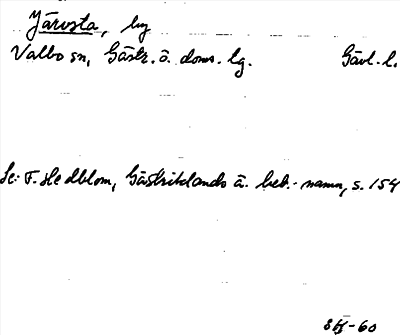 Järvsta, by
Valbo sn, Gästr. ö. doms. lg. Gävl. l.
Se: F. Hedblom, Gästriklands ä. beb.-namn, s. 154
-60